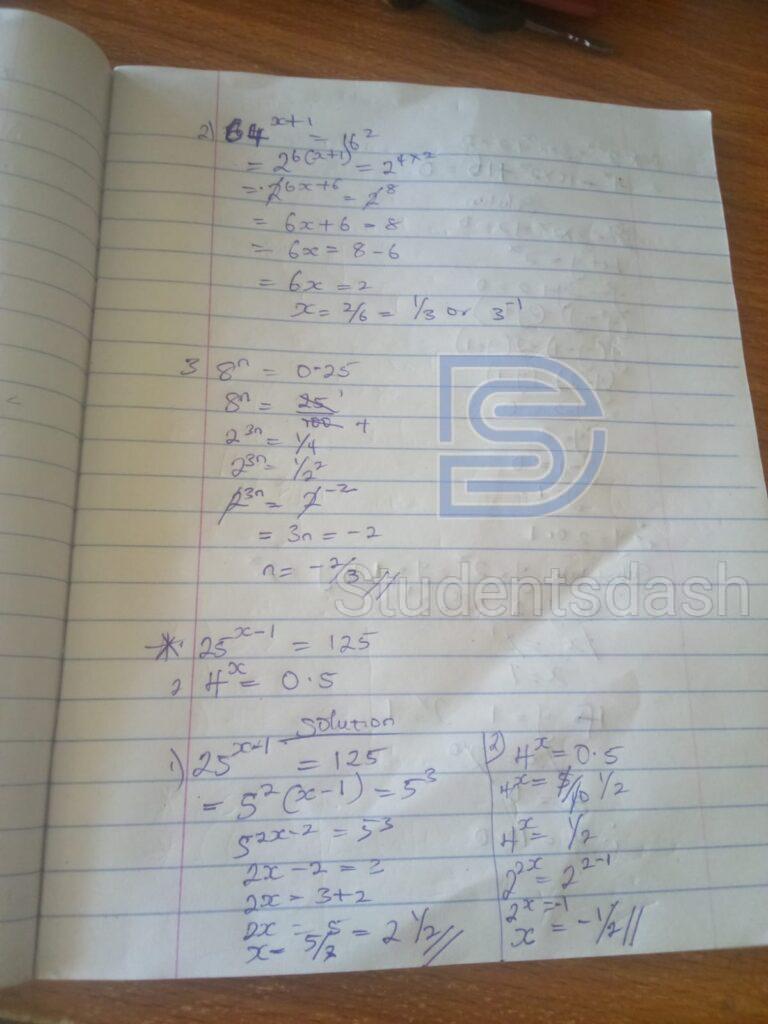 2) 64^(x+1) = 16^2
= 2^(6(x+1)) = 2^(4×2)
= 2^(6x+6) = 2^8
= 6x+6 = 8
= 6x = 8-6
= 6x = 2
x = 2/6 = 1/3 or 3^-1
3 8^n = 0.25
8^n = 25/100 1 4
2^3n = 1/4
2^3n = 1/2^2
2^3n = 2^-2
= 3n = -2
n = -2/3 //
* 25^(x-1) = 125
2 4^x = 0.5
Solution
1) 25^(x-1) = 125
= 5^2(x-1) = 5^3
5^(2x-2) = 5^3
2x-2 = 3
2x = 3+2
2x = 5
x = 5/2 = 2 1/2 //
2) 4^x = 0.5
4^x = 5/10 1/2
4^x = 1/2
2^2x = 2^2-1
2x = -1
x = -1/2 //
Studentsdash